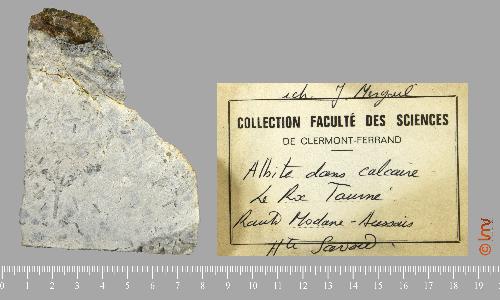 ech. J. Mergoil
COLLECTION FACULTÉ DES SCIENCES
DE CLERMONT-FERRAND
Albite dans calcaire
Le Rx Tourné
Route Modane - Aussois
Hte Savoie
© lmv
0 1 2 3 4 5 6 7 8 9 10 11 12 13 14 15 16 17 18 19